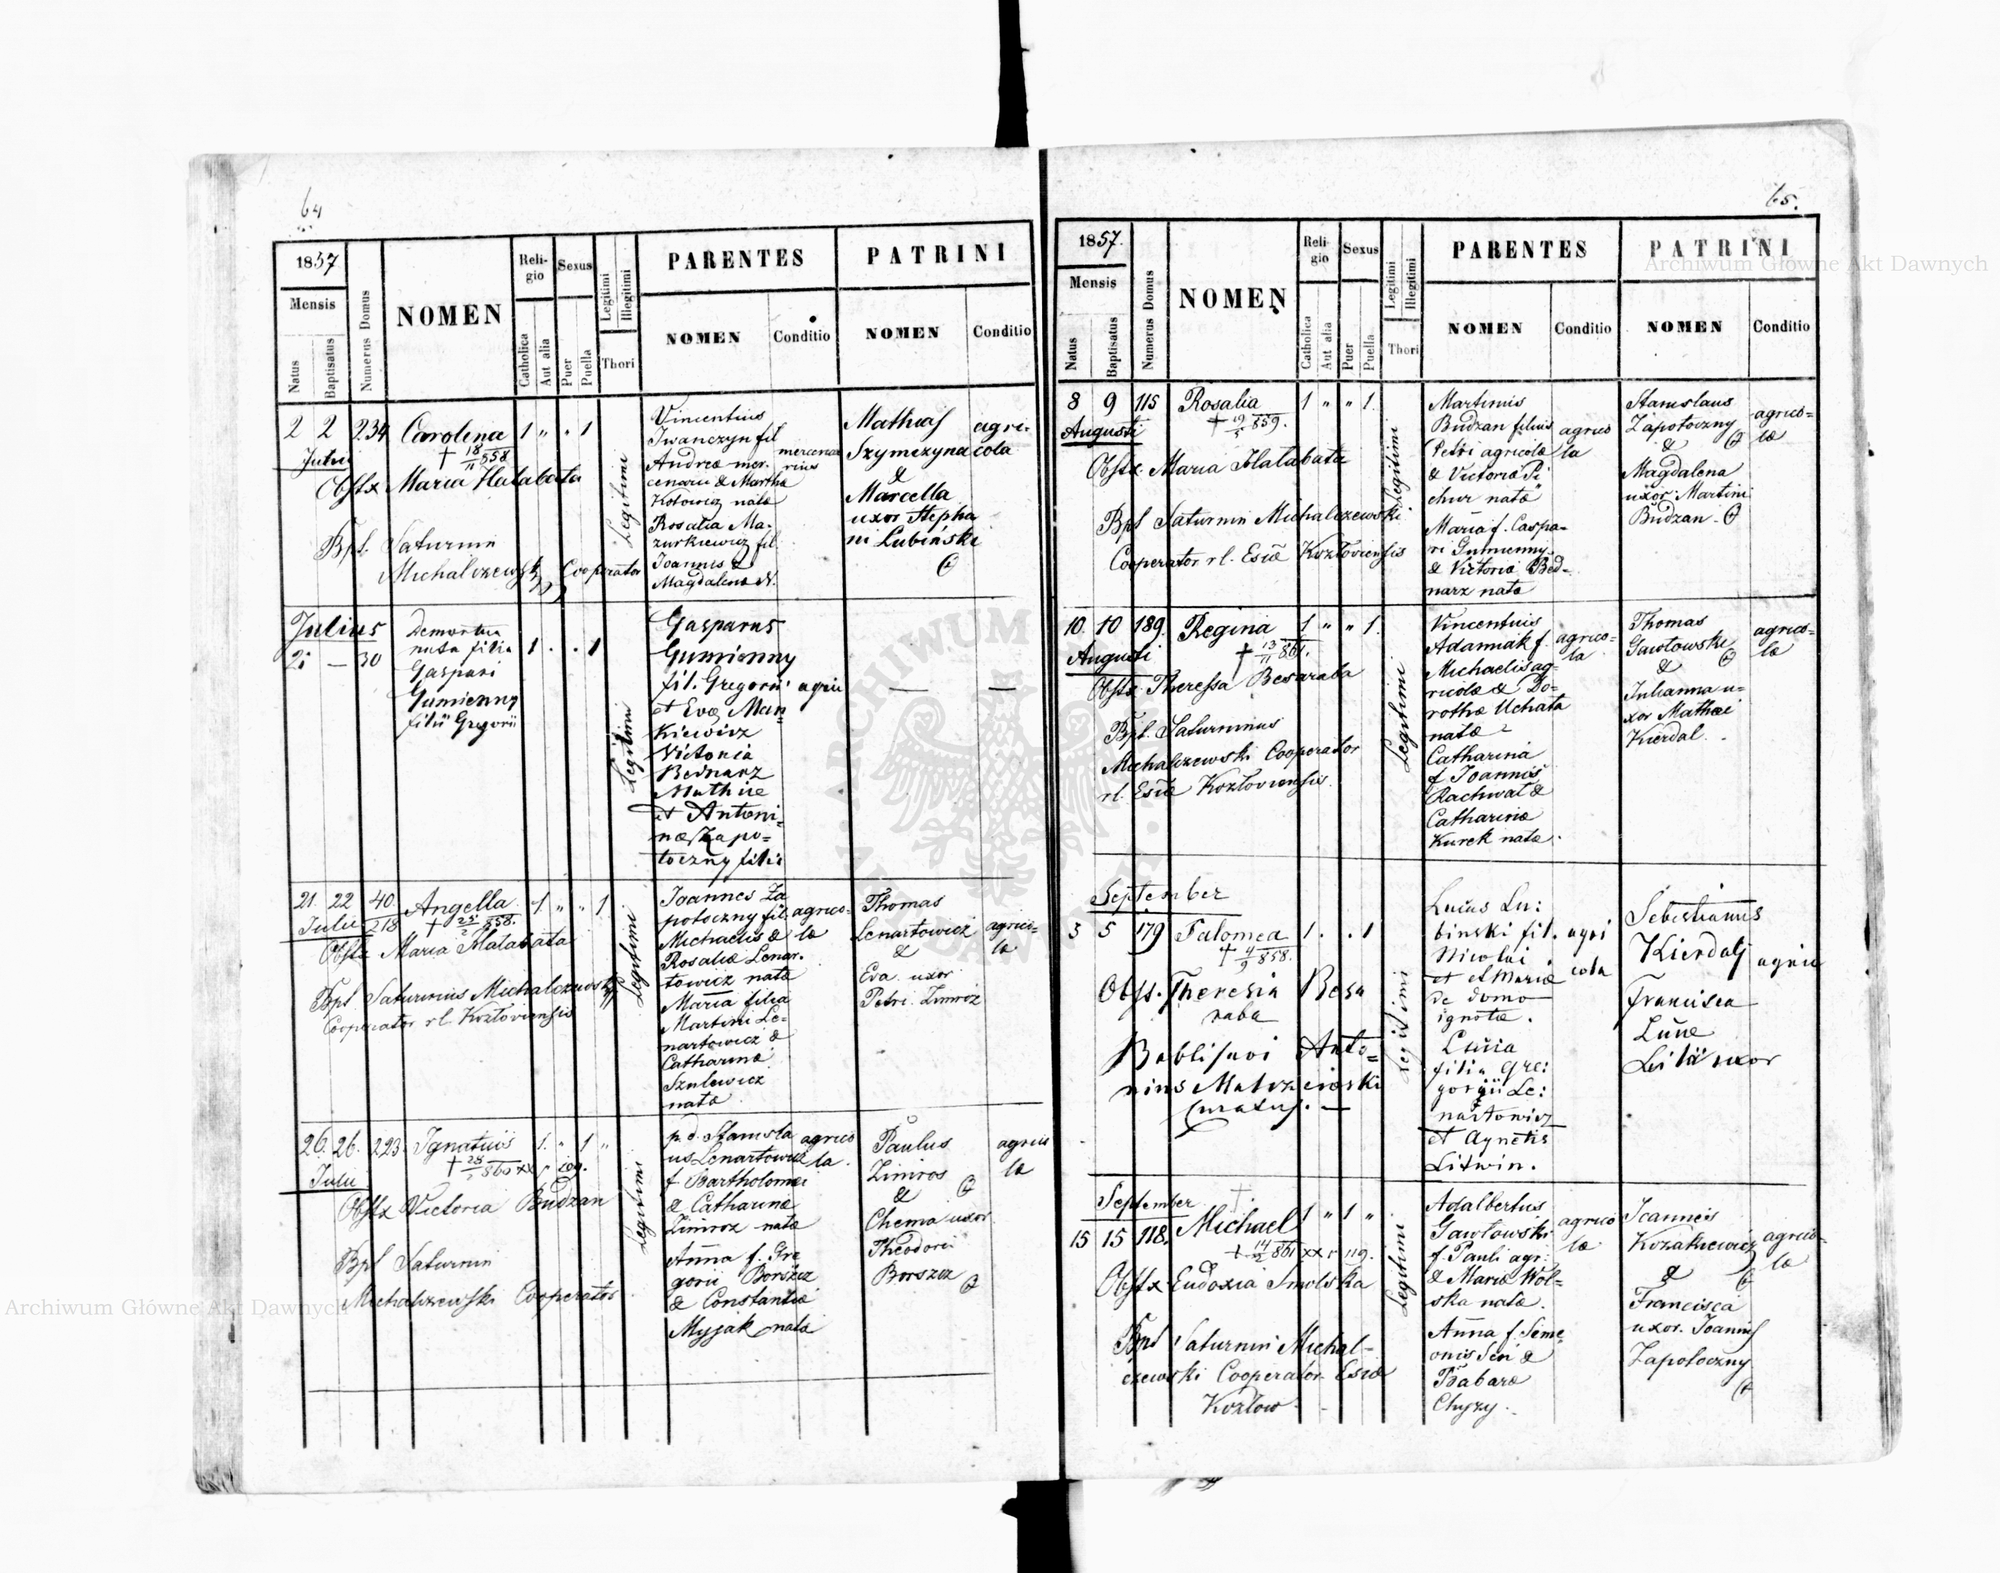 64
1857
Mensis
Natus
Baptisatus
Numerus Domus
NOMEN
Reli-
gio
Catholica
Aut alia
Sexus
Puer
Puella
Legitimi
Illegitimi
Thori
PARENTES
NOMEN
Conditio
PATRINI
NOMEN
Conditio
2 2 234 Carolina 1 " . 1
Julii † 18/11 858
Obstx Maria Halabata
Bpt. Saturnin
Michalczewski Cooperator
Legitimi
Vincentius
Iwanczyn fil
Andreæ mer-
cenarii & Martha
Kotowicz nata
Rosalia Ma-
zurkiewicz fil
Joannis &
Magdalena N.
mercena
rius
Mathias
Szymczyna
&
Marcella
uxor Stepha
ni Lubinski
agri-
cola
Julius
21 — 30
Demortua
nata filia
Gaspari
Gumienny
filii Gregorii
1 . . 1
Legitimi
Gasparus
Gumienny
fil. Gregorii
et Evæ Man-
kiewicz
Victoria
Bednarz
Mathiæ
et Antoni-
næ Zapo-
toczny filia
agric
— —
21. 22 40. Angella 1. " " 1
Julii 218 † 25/2 858.
Obstx Maria Halabata
Bpt Saturninus Michalczewski
Cooperator rl. Kozloviensis
Legitimi
Joannes Za
potoczny fil.
Michaelis &
Rosaliæ Lenar-
towicz nata
Maria filia
Martini Le-
nartowicz &
Catharinæ
Szulewicz
nata
agrico-
la
Thomas
Lenartowicz
&
Eva uxor
Petri Zimroz
agrico-
la
26. 26. 223. Ignatius 1. " 1 "
Julii
Obstx Victoria Budzan
Bpt Saturnin
Michalczewski Cooperator
Legitimi
p. d. Stanisla
us Lenartowicz
f Bartholomei
& Catharinæ
Zimroz nata
Anna f. Gre
gorii Borszcz
& Constantiæ
Myjak nata
agrico
la.
Paulus
Zimros
&
Chema uxor
Theodori
Borszcz
agrico
la
65.
1857.
Mensis
Natus
Baptisatus
Numerus Domus
NOMEN
Reli-
gio
Catholica
Aut alia
Sexus
Puer
Puella
Legitimi
Illegitimi
Thori
PARENTES
NOMEN
Conditio
PATRINI
NOMEN
Conditio
8 9 115 Rosalia 1 " " 1.
Augusti † 19/5 859.
Obstx Maria Halabata
Bpt Saturnin Michalczewski
Cooperator rl. Esiæ Kozloviensis
Legitimi
Martinus
Budzan filius
Petri agricolæ
& Victoria Pi
chur natæ
Maria f. Caspa-
ri Gumienny
& Victoria Bed-
narz nata
agrico
la
Stanislaus
Zapotoczny
&
Magdalena
uxor Martini
Budzan
agrico-
læ
10. 10 189. Regina 1 " " 1.
Augusti † 13/11 861.
Obstx Theressa Besaraba
Bpt. Saturninus
Michalczewski Cooperator
rl. Esiæ Kozloviensis.
Legitimi
Vincentius
Adamiak f.
Michaelis ag-
ricolæ & Do-
rothæ Uchata
natæ
Catharina
f Joannis
Rachwat &
Catharinæ
Kurek nata.
agrico-
la
Thomas
Gawlowski
&
Julianna u-
xor Mathæi
Kierdal.
agrico-
læ
September
3 5 179 Salomea 1. . . 1
† 4/9 858.
Obst. Theresia Besa
raba
Baptisavi Anto-
nius Malczewski
Curatus. —
Legitimi
Lucas Lu:
binski fil.
Nicolai
et Mariæ
de domo
ignotæ.
Lucia
filia Gre:
gorii Le:
nartowicz
et Agnetis
Litwin.
agri
cola
Sebestianus
Kierdalj
Francisca
Lucæ
uxor
agric
September
15 15 118. Michael 1 " 1 "
† 14/12 861 xx r 119.
Obstx Eudoxia Smolska
Bpt Saturnin Michal-
czewski Cooperator Esiæ
Kozlow
Legitimi
Adalbertus
Gawlowski
f Pauli agri:
& Mariæ Wol-
ska nata.
Anna f. Seme
onis Seń &
Babaræ
Chyzy.
agrico
la
Joannes
Kozakiewicz
&
Francisca
uxor. Joannis
Zapotoczny
agrico-
la
ARCHIWUM
Archiwum Główne Akt Dawnych
Archiwum Główne Akt Dawnych